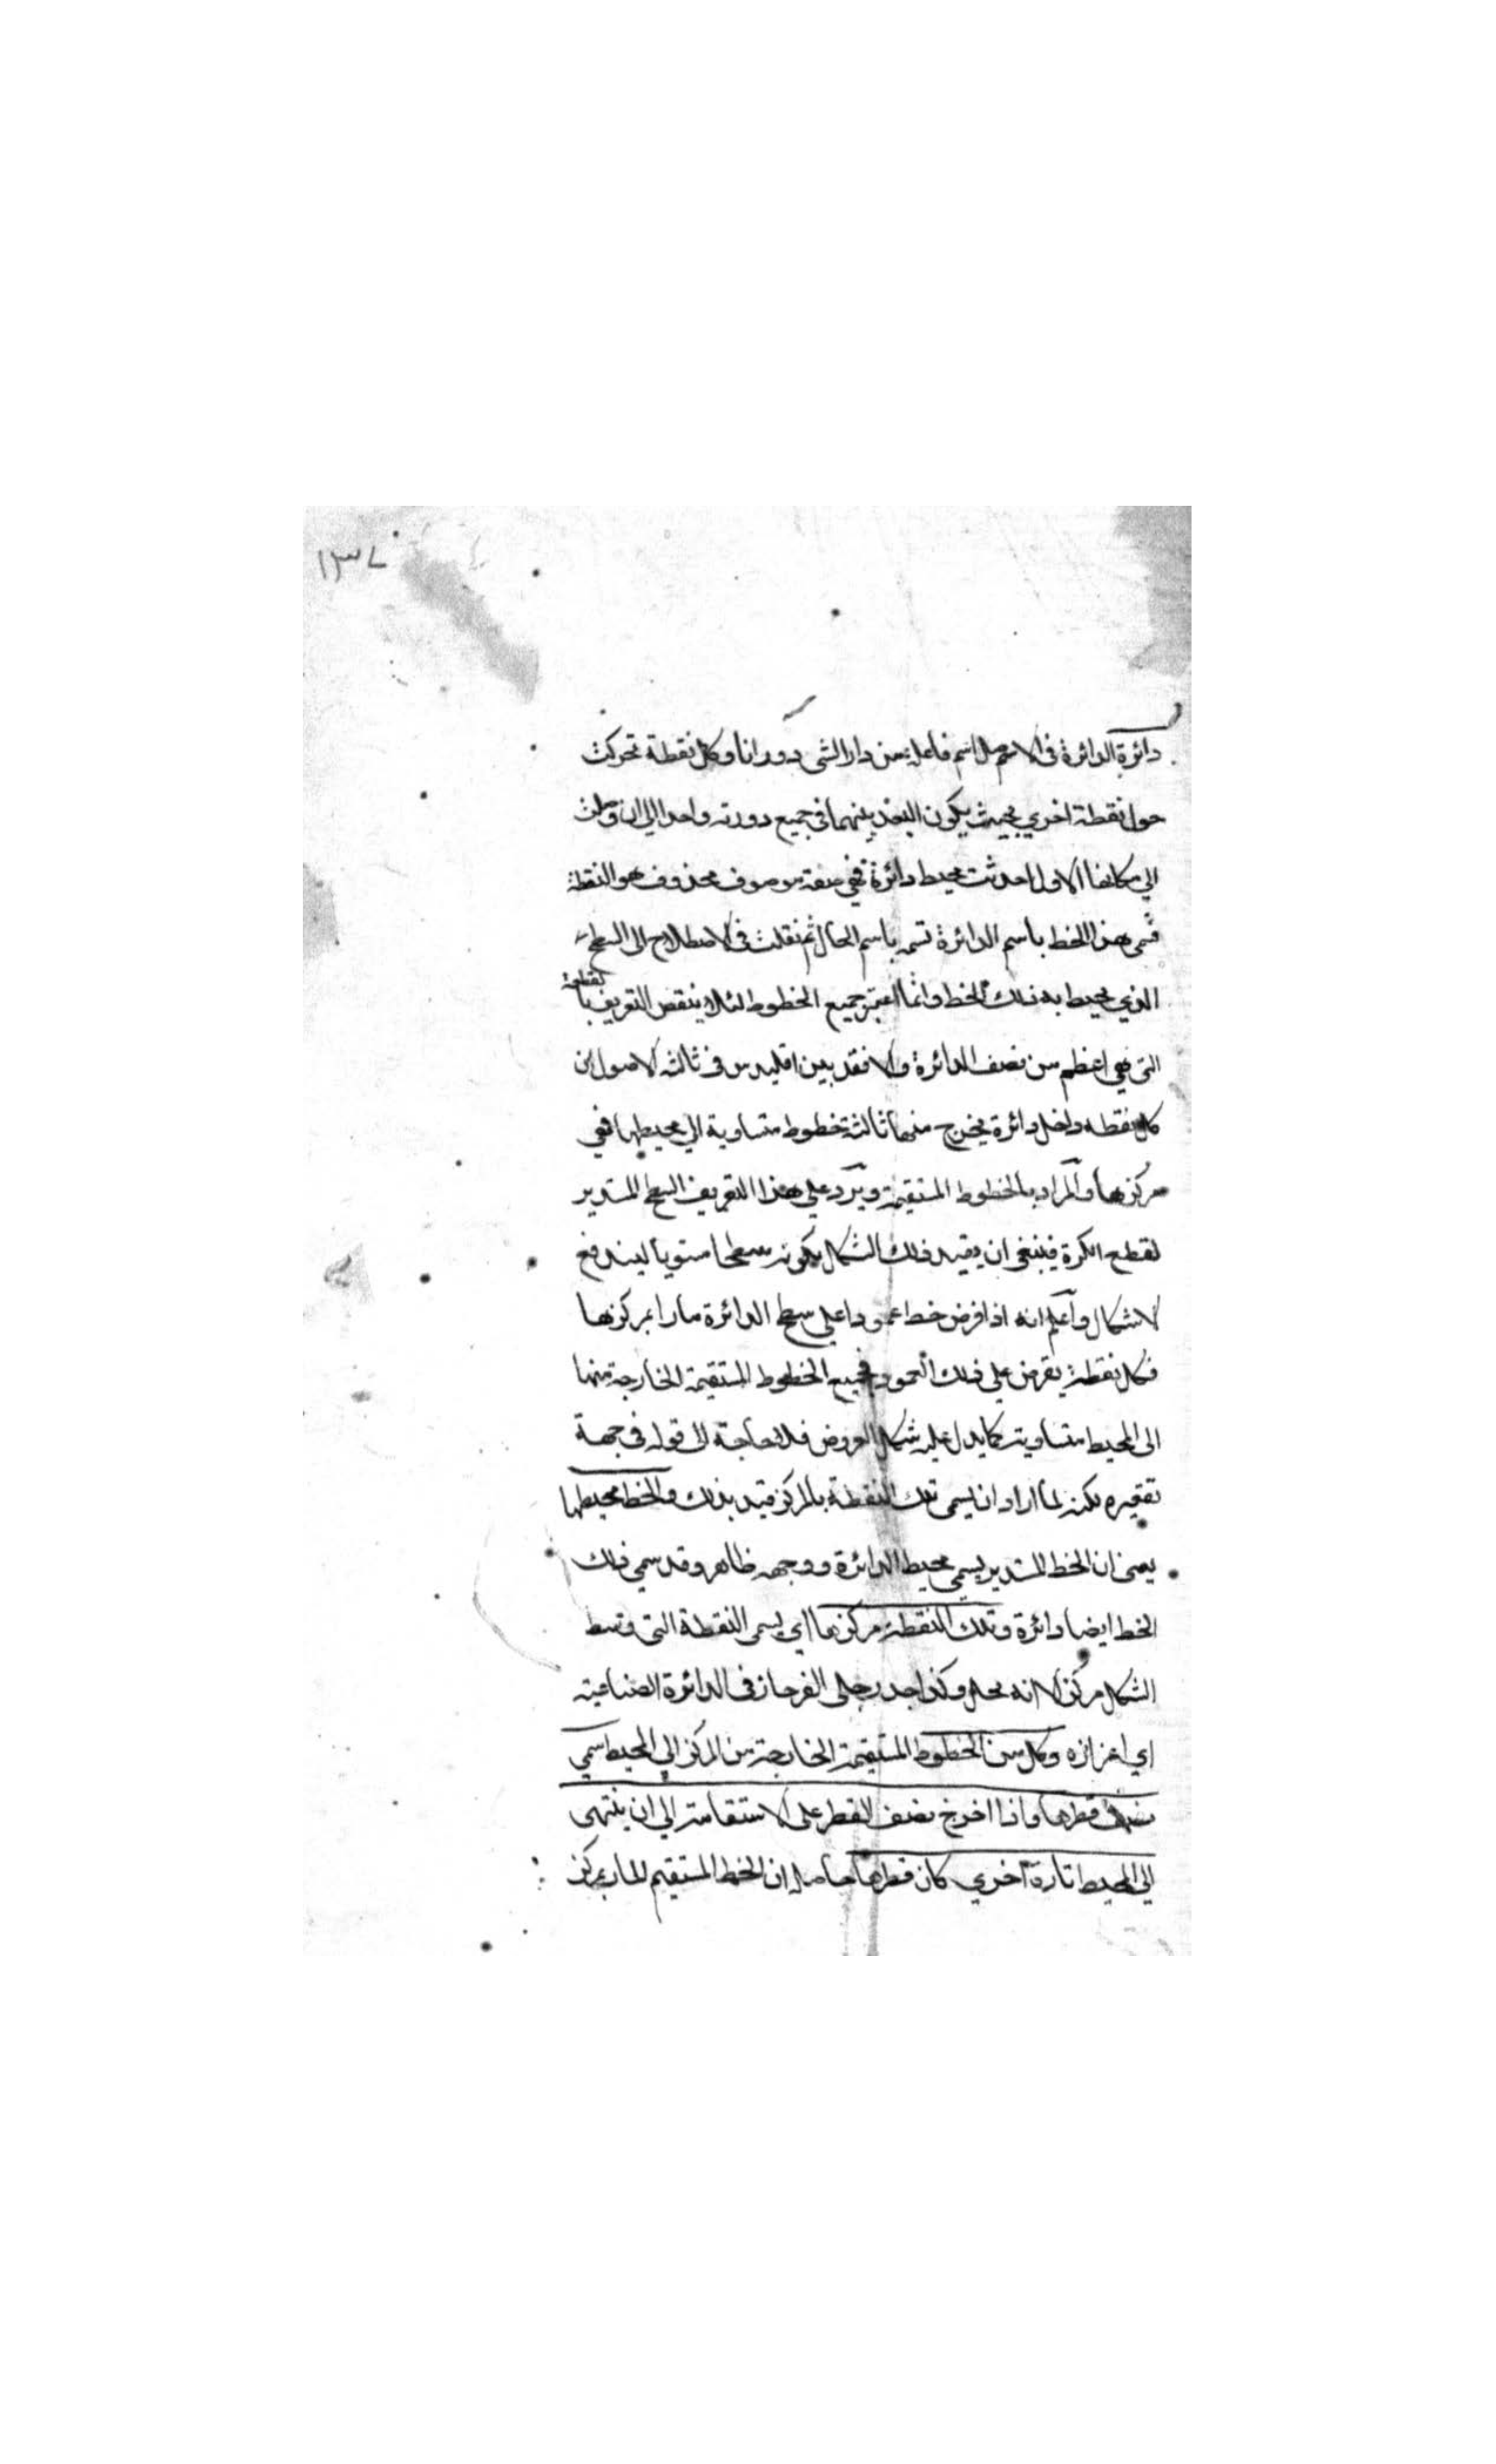 ١٣٧
دائرة الدائرة في الاصل اسم فاعل من دار الشي دورانا وكل نقطة تحركت
حول نقطة اخري بحيث يكون البعد بينهما في جميع دورته واحدا الي ان وصلت
الي مكانها الاول احدثت محيط دائرة فهي صفة موصوف محذوف هو النقطة
فسمي هذا الخط باسم الدائرة تسمية باسم الحال ثم نقلت في الاصطلاح الى السطح
الذي يحيط به ذلك الخط وانما اعتبر جميع الخطوط لئلا ينتقض التعريف بالقطعة
التي هي اعظم من نصف الدائرة والا فقد بين اقليدس في ثالثه الاصول ان
كل نقطه داخل دائرة يخرج منها ثالثة خطوط متساوية الي محيطها فهي
مركزها والمراد بالخطوط المستقيمة ويرد علي هذا التعريف السطح المستدير
لقطع الكرة فينبغي ان يقيد ذلك الشكل بكونه سطحا مستويا ليندفع
الاشكال واعلم انه اذا فرض خط اعمودا علي سطح الدائرة مارا بمركزها
فكل نقطة يفرض علي ذلك العمود فجميع الخطوط المستقيمة الخارجة منها
الى المحيط متساوية كما يدل عليه شكل العروض فلا حاجة الى قوله في جهة
تقعيره لكن لما اراد ان يسمى تلك النقطة بالمركز قيد بذلك والخط محيطها
يعني ان الخط المستدير يسمي محيط الدائرة ووجهه ظاهر وقد سمي ذلك
الخط ايضا دائرة وتلك النقطة مركزها اي يسمى النقطة التي وسط
الشكل مركز الانه محل وكذا احد رجلى الفرجار في الدائرة الصناعية
اي اغرازه وكل من الخطوط المستقيمة الخارجة من المركز الي المحيط اسمي
نصف قطرها واذا اخرج نصف القطر على الاستقامة الي ان ينتهى
الي المحيط تارة اخري كان قطرها حاصله ان الخط المستقيم المار بمركز